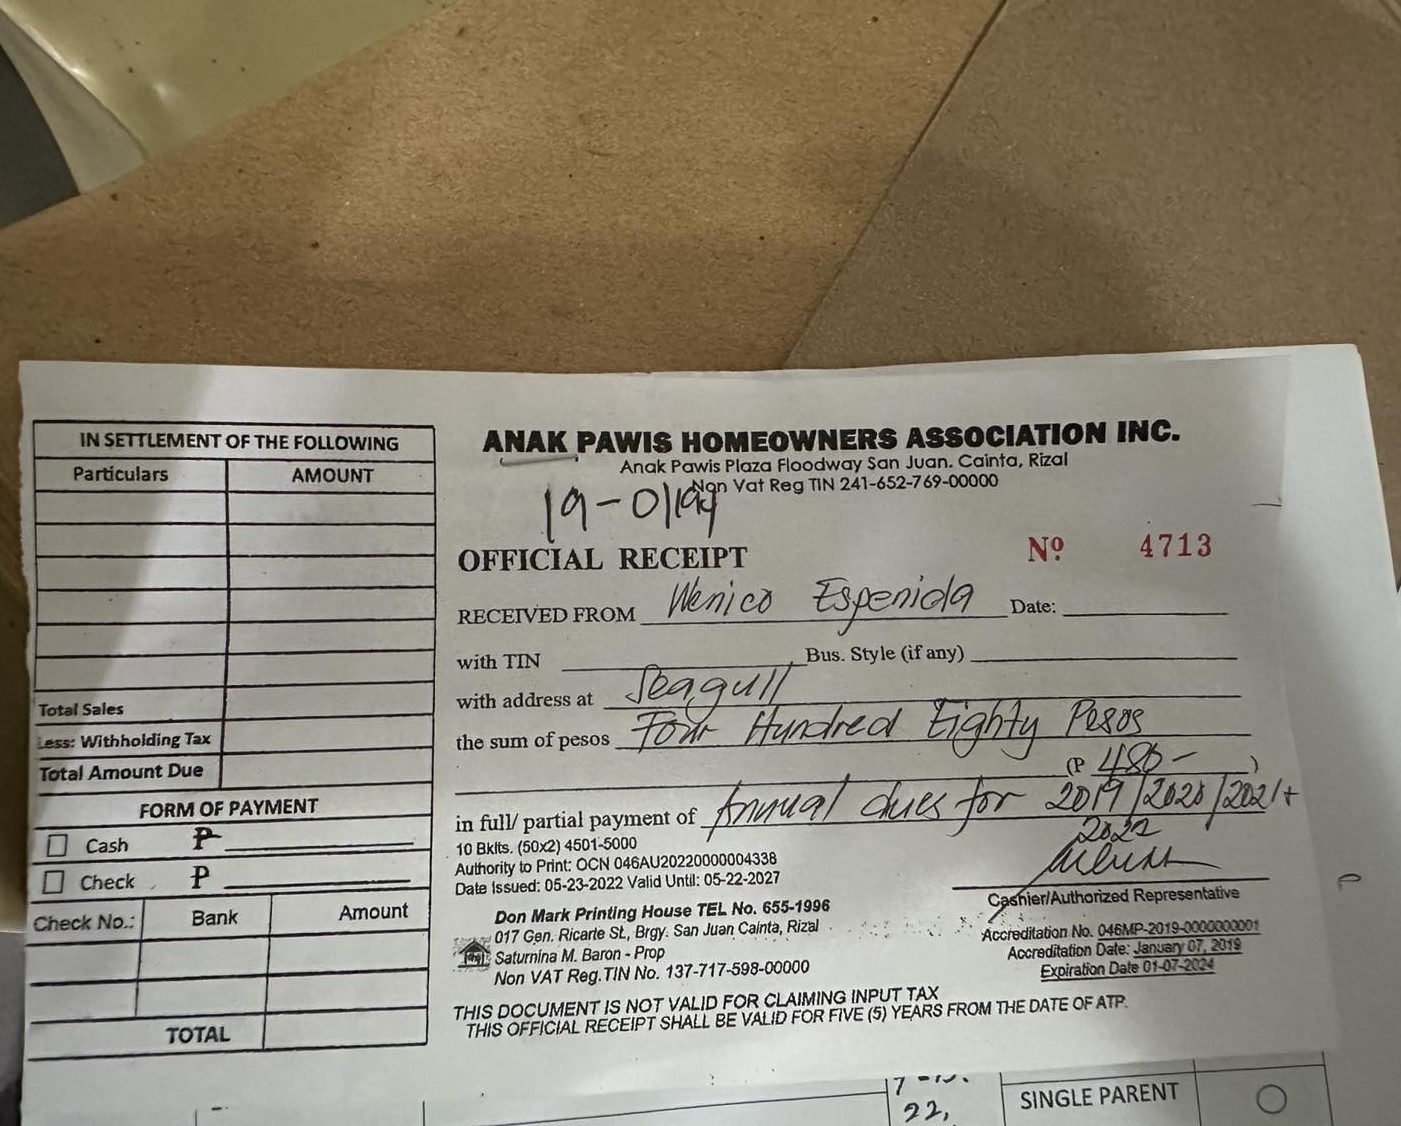 IN SETTLEMENT OF THE FOLLOWING
Particulars AMOUNT
Total Sales
Less: Withholding Tax
Total Amount Due
FORM OF PAYMENT
Cash ₱
Check ₱
Check No.: Bank Amount
TOTAL
ANAK PAWIS HOMEOWNERS ASSOCIATION INC.
Anak Pawis Plaza Floodway San Juan. Cainta, Rizal
Non Vat Reg TIN 241-652-769-00000
OFFICIAL RECEIPT Nº 4713
RECEIVED FROM Wenico Espenida Date:
with TIN Bus. Style (if any)
with address at Seagull
the sum of pesos Four Hundred Eighty Pesos
(P 480- )
in full/ partial payment of Annual dues for 2019/2020/2021+
2022
10 Bklts. (50x2) 4501-5000
Authority to Print: OCN 046AU20220000004338
Date Issued: 05-23-2022 Valid Until: 05-22-2027
Cashier/Authorized Representative
Don Mark Printing House TEL No. 655-1996
017 Gen. Ricarte St., Brgy. San Juan Cainta, Rizal
Saturnina M. Baron - Prop
Non VAT Reg.TIN No. 137-717-598-00000
Accreditation No. 046MP-2019-0000000001
Accreditation Date: January 07, 2019
Expiration Date 01-07-2024
THIS DOCUMENT IS NOT VALID FOR CLAIMING INPUT TAX
THIS OFFICIAL RECEIPT SHALL BE VALID FOR FIVE (5) YEARS FROM THE DATE OF ATP.
22,
SINGLE PARENT